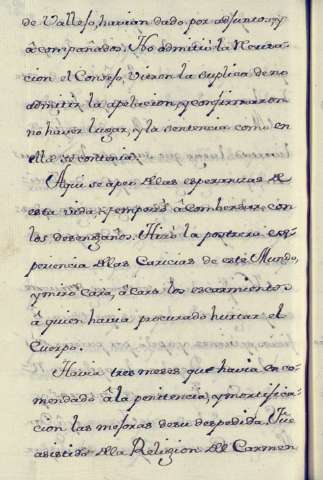 de Vallejo, havian dado por adjuntos, y
acompañados. No admitiò la Recusa-
cion el Consejo, vieron la suplica de no
admitir la apelacion, y confirmaron
no haver lugar, y la sentencia como en
ella se contenia.
Aqui se apeò de las esperanzas de
esta vida, y empezò à comberzar con
los desengaños. Hizo la postrera ex-
periencia de las Caricias de este Mundo,
y miro cara, à cara los escarmientos
à quien havia procurado hurtar el
Cuerpo.
Havia tres meses que havia enco-
mendado à la penitencia, y mortifica-
cion las mejoras de su despedida. Fue
asistido de la Religion del Carmen